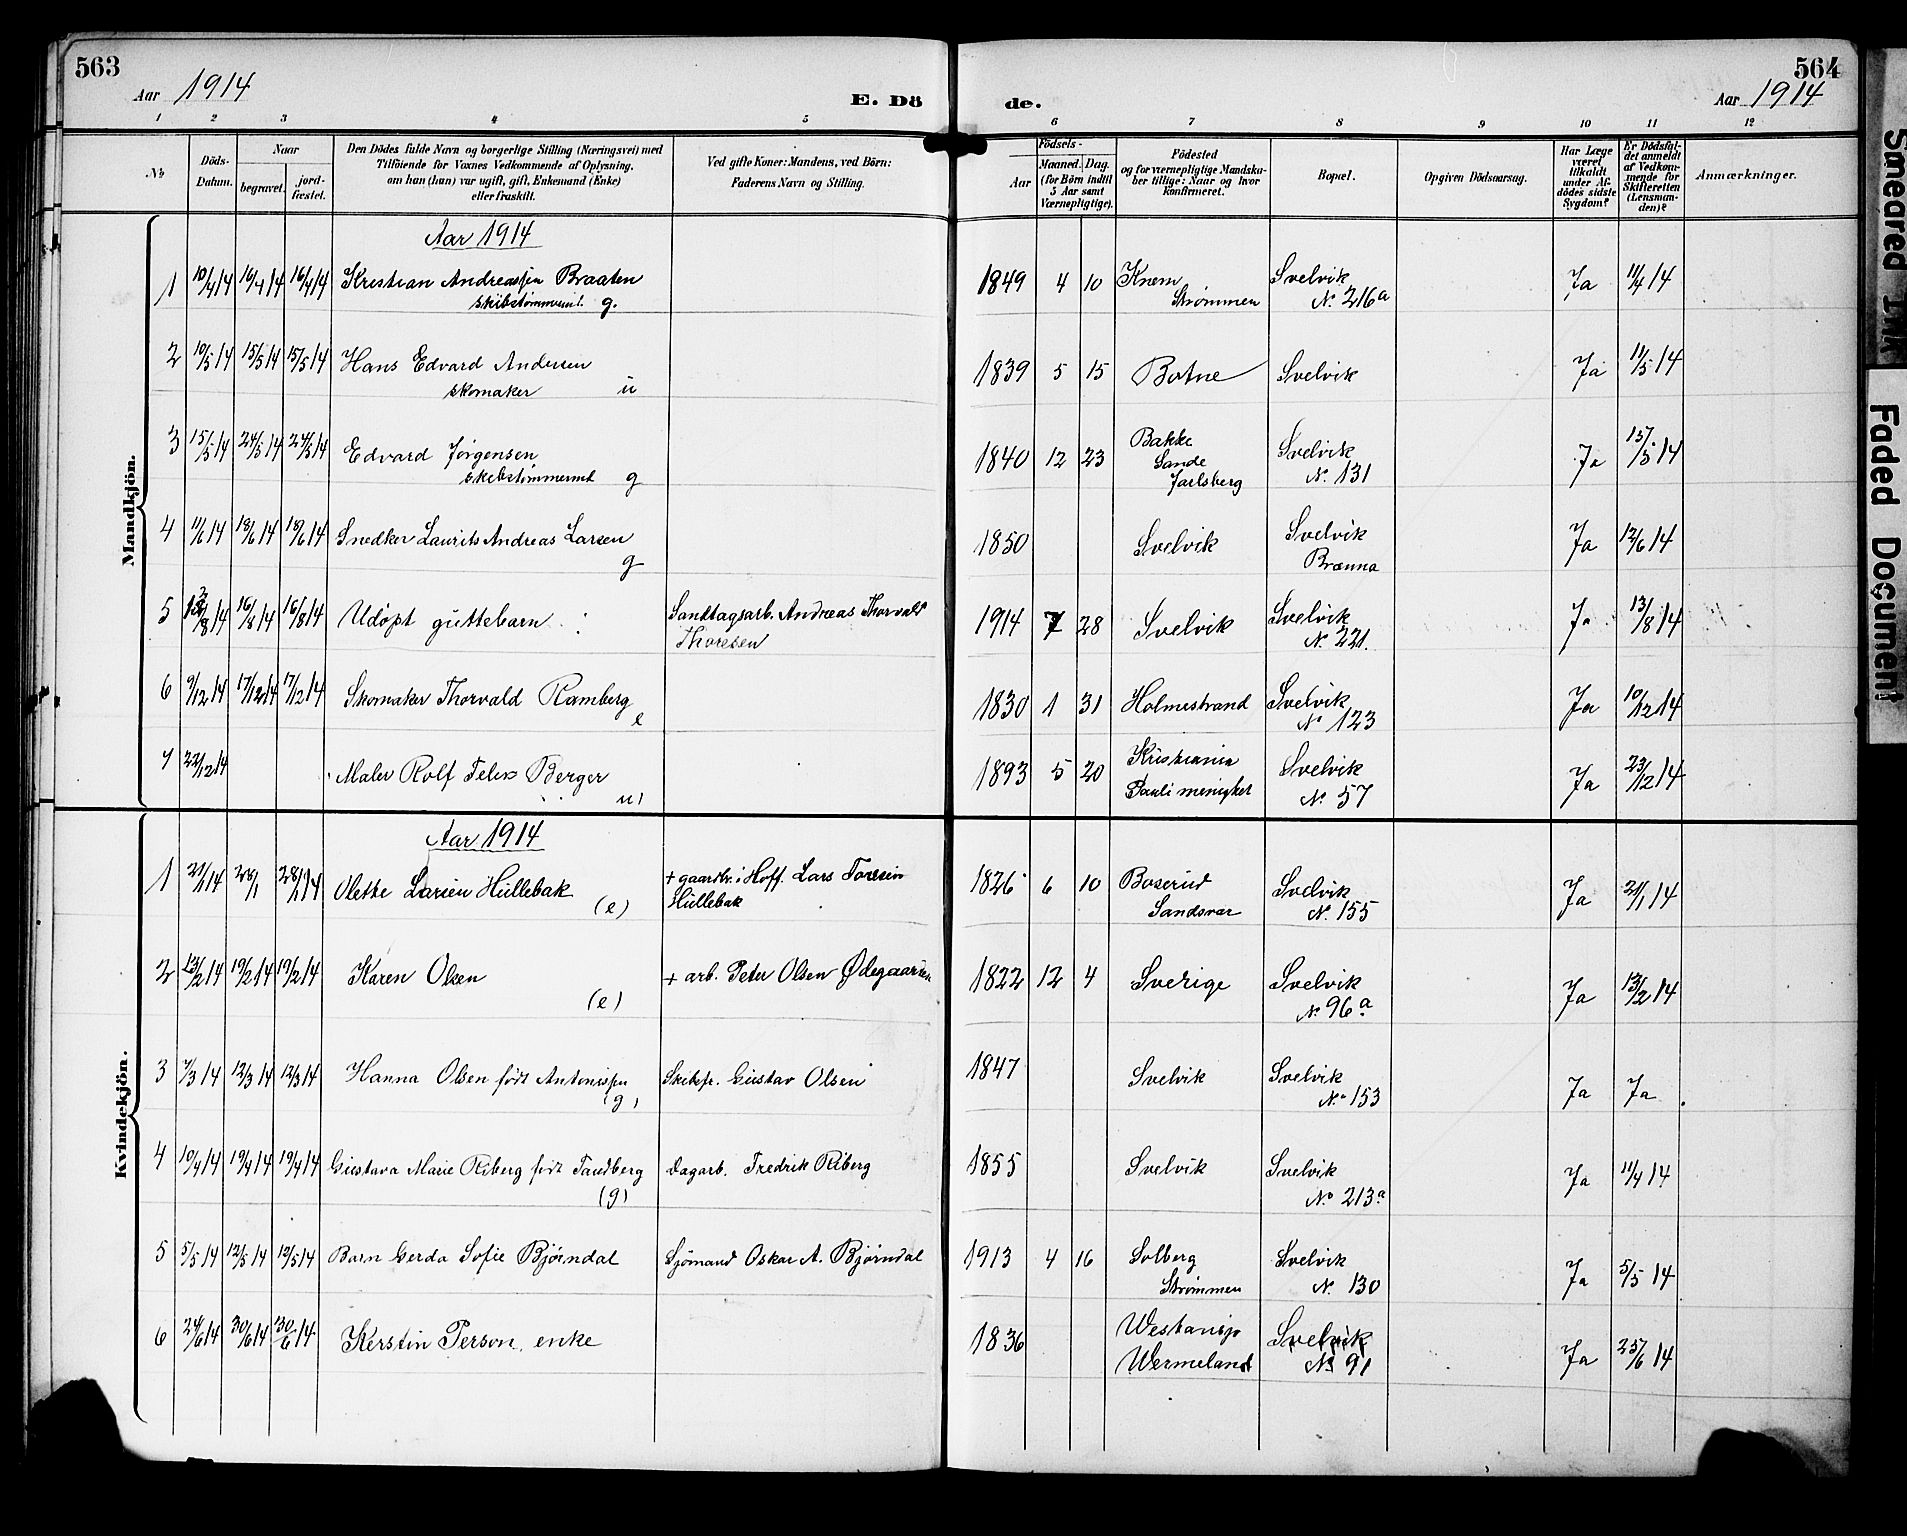 563
Aar 1914
E. Dö
de.
564
Aar 1914
1 2 3 4 5 6 7 8 9 10 11 12
No
Döds-Datum.
Naar
begravet.
jord-fæstet.
Den Dödes fulde Navn og borgerlige Stilling (Næringsvei) med
Tilföiende for Voxnes Vedkommende af Oplysning.
om han (hun) var ugift, gift, Enkemand (Enke)
eller fraskilt.
Ved gifte Koner: Mandens, ved Börn:
Faderens Navn og Stilling.
Födsels-
Aar
Maaned. Dag.
(for Börn indtil
5 Aar samt
Værnepligtige).
Födested
og for værnepligtige Mandska-
ber tillige: Naar og hvor
konfirmeret.
Bopæl.
Opgiven Dödsaarsag.
Har Læge
været
tilkaldt
under Af-
dödes sidste
Sygdom?
Er Dödsfal-
det anmeldt
af Vedkom-
mende for
Skifteretten
(Lensman-
den)?
Anmærkninger.
Mandkjön.
Aar 1914
1 10/4 14 16/4 14 16/4 14 Kristian Andreassen Braaten 1849 4 10 Knem Svelvik Ja 11/4 14
skibstømmermt. g. Strømmen No 216a
2 10/5 14 15/5 14 15/5 14 Hans Edvard Andersen 1839 5 15 Botne Svelvik Ja 11/5 14
skomaker u
3 15/5 14 24/5 14 24/5 14 Edvard Jørgensen 1840 12 23 Bakke Svelvik Ja 15/5 14
skibstømmermt g Sande No. 131
Jarlsberg
4 11/6 14 18/6 14 18/6 14 Snedker Laurits Andreas Larsen 1850 Svelvik Svelvik Ja 12/6 14
g Brænna
5 /8 14 16/8 14 16/8 14 Udøpt guttebarn Sandtagsarb. Andreas Thorvald 1914 7 28 Svelvik Svelvik Ja 13/8 14
Thoresen No 221.
6 9/12 14 17/12 14 17/12 14 Skomaker Thorvald Ramberg 1830 1 31 Holmestrand Svelvik Ja 10/12 14
e No 123
7 22/12 14 Maler Rolf Felix Berger 1893 5 20 Kristiania Svelvik Ja 23/12 14
u) Pauli menighet No 57
Kvindekjön.
Aar 1914
1 21/1 14 28/1 28/1 14 Olette Larsen Hullebak + gaardbr. i Hoff. Lars Toresen 1826 6 10 Boserud Svelvik Ja 21/1 14
(e) Hullebak Sandsvær No. 155
2 13/2 14 19/2 14 19/2 14 Karen Olsen + arb. Peter Olsen Ødegaarden 1822 12 4 Sverige Svelvik Ja 13/2 14
(e) No 96a
3 7/3 14 12/3 14 12/3 14 Hanna Olsen født Antonissen Skibsf. Gustav Olsen 1847 Svelvik Svelvik Ja Ja
(g) No 153
4 10/4 14 19/4 14 19/4 14 Gustava Marie Riberg født Sandberg dagarb. Fredrik Riberg 1855 Svelvik Svelvik Ja 11/4 14
(g) No 213a
5 5/5 14 12/5 14 12/5 14 Barn Gerda Sofie Bjørndal Sjømand Oskar A. Bjørndal 1913 4 16 Solberg Svelvik Ja 5/5 14
Strømmen No 130
6 24/6 14 30/6 14 30/6 14 Kerstin Person, enke 1836 Svelvik Ja 25/6 14
Wermeland No 91
Smeared Ink
Faded Document